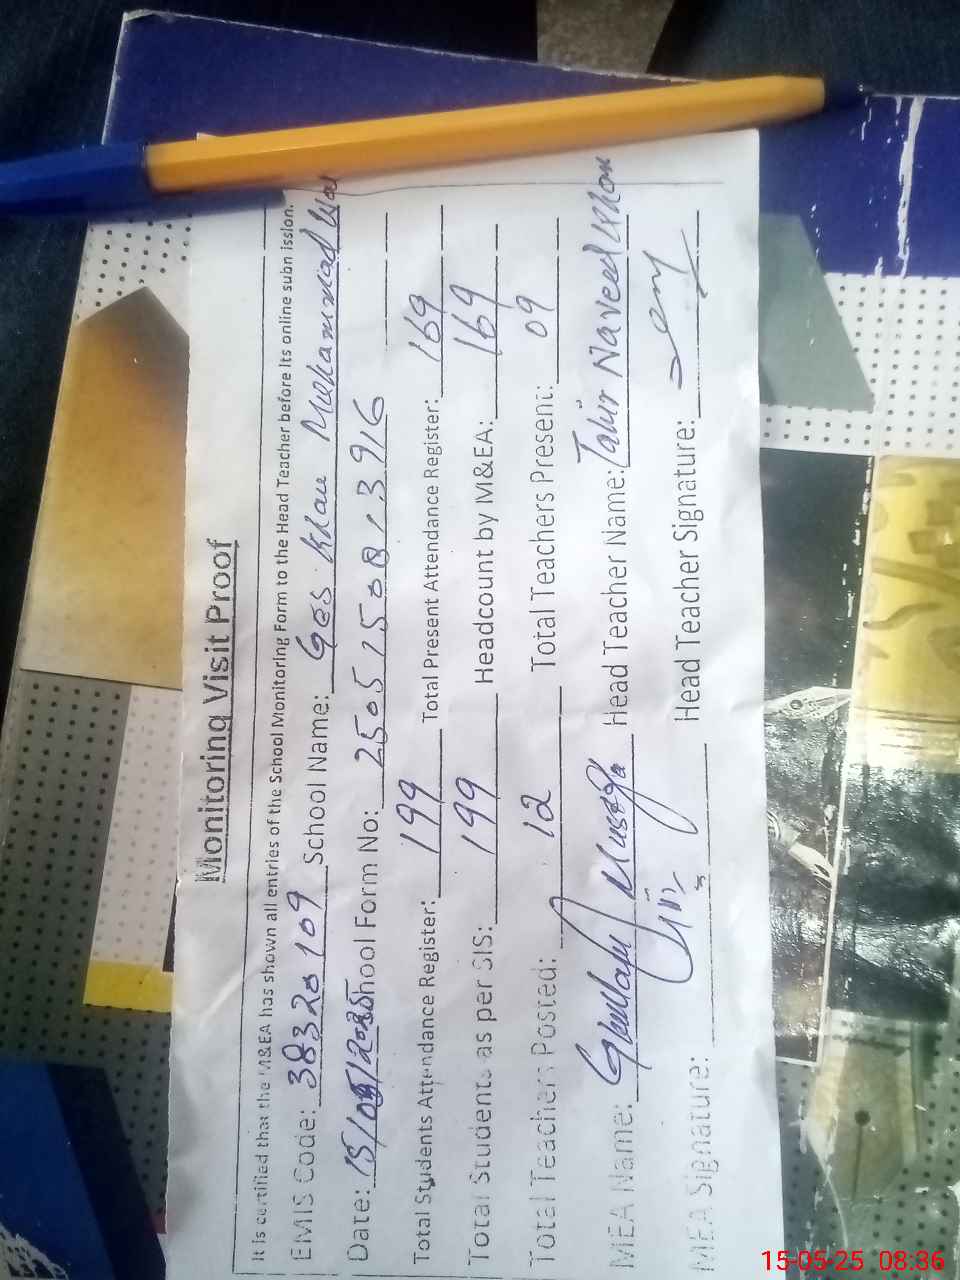 Monitoring Visit Proof
It is certified that the M&EA has shown all entries of the School Monitoring Form to the Head Teacher before its online submission.
EMIS Code: 38320109 School Name: GES Khan Muhammad Wal
Date: 15/05/2025 School Form No: 2505150813916
Total Students Attendance Register: 199 Total Present Attendance Register: 169
Total Students as per SIS: 199 Headcount by M&EA: 169
Total Teachers Posted: 12 Total Teachers Present: 09
MEA Name: Ghulam Mustafa Head Teacher Name: Tahir Naveed Khan
MEA Signature: Head Teacher Signature:
15-05-25 08:36